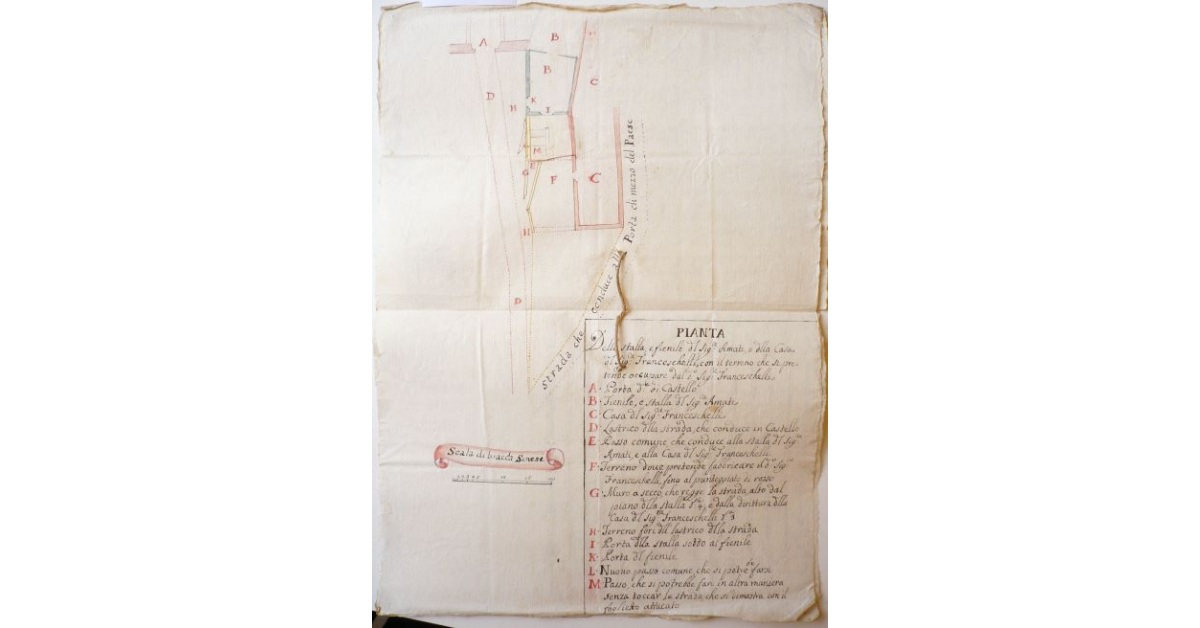 A
B
B
C
D
H
K
I
M
E
G
F
C
H
D
Strada che conduce alla Porta di mezzo del Paese
Scala di braccia Sanese
PIANTA
Della stalla, e fienile del Sig.r Amati, e della Casa
del Sig.r Franceschelli, con il terreno che si pre-
tende occupare dal d.o Sig.r Franceschelli
A. Porta d.a di Castello
B. Fienile, e stalla del Sig.r Amati
C. Casa del Sig.r Franceschelli
D. Lastrico della strada, che conduce in Castello
E. Passo comune, che conduce alla stalla del Sig.r
Amati, e alla Casa del Sig.r Franceschelli
F. Terreno dove pretende fabbricare il d.o Sig.r
Franceschelli fino al punteggiato di rosso
G. Muro a secco, che regge la strada, alto dal
piano della stalla e dalla dirittura della
Casa del Sig.r Franceschelli
H. Terreno fori del lastrico della strada
I. Porta della stalla sotto al fienile
K. Porta del fienile
L. Nuovo passo comune, che si potrebbe farsi
M. Passo, che si potrebbe fare in altra maniera
senza toccar la strada, che si dimostra con il
foglietto attaccato